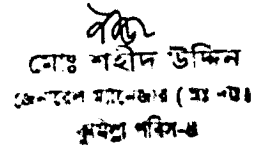 মোঃ শহীদ উদ্দিন
জেনারেল ম্যানেজার (ভাঃ
কুমিল্লা পবিস-৪